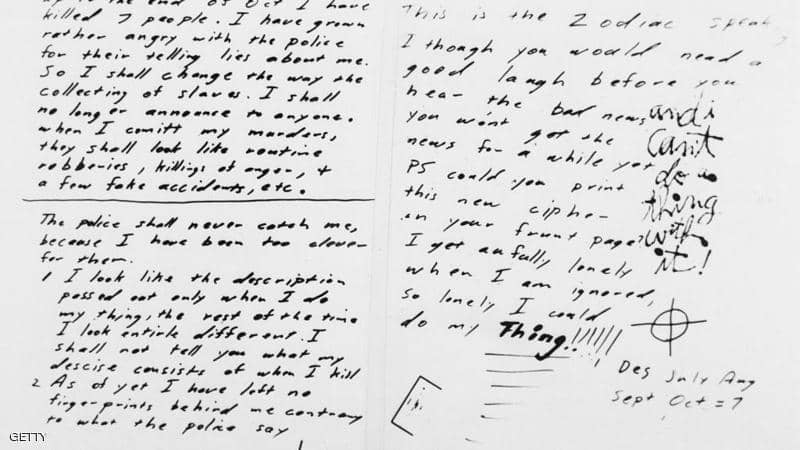 up to the end of Oct I have
killed 7 people. I have grown
rather angry with the police
for their telling lies about me.
So I shall change the way the
collecting of slaves. I shall
no longer announce to anyone.
when I comitt my murders,
they shall look like routine
robberies, killings of anger, +
a few fake accidents, etc.
The police shall never catch me,
because I have been too clever
for them.
1 I look like the description
passed out only when I do
my thing, the rest of the time
I look entirle different. I
shall not tell you what my
descise consists of when I kill
2 As of yet I have left no
fingerprints behind me contrary
to what the police say
This is the Zodiac speak
I though you would need a
good laugh before you
hear the bad news
you won't get the
news for a while yet
PS could you print
this new cipher
on your frunt page?
I get awfully lonely
when I am ignored,
So lonely I could
do my Thing!!!!!!
and i
can't
do a
thing
with
it!
Des July Aug
Sept Oct = 7
GETTY